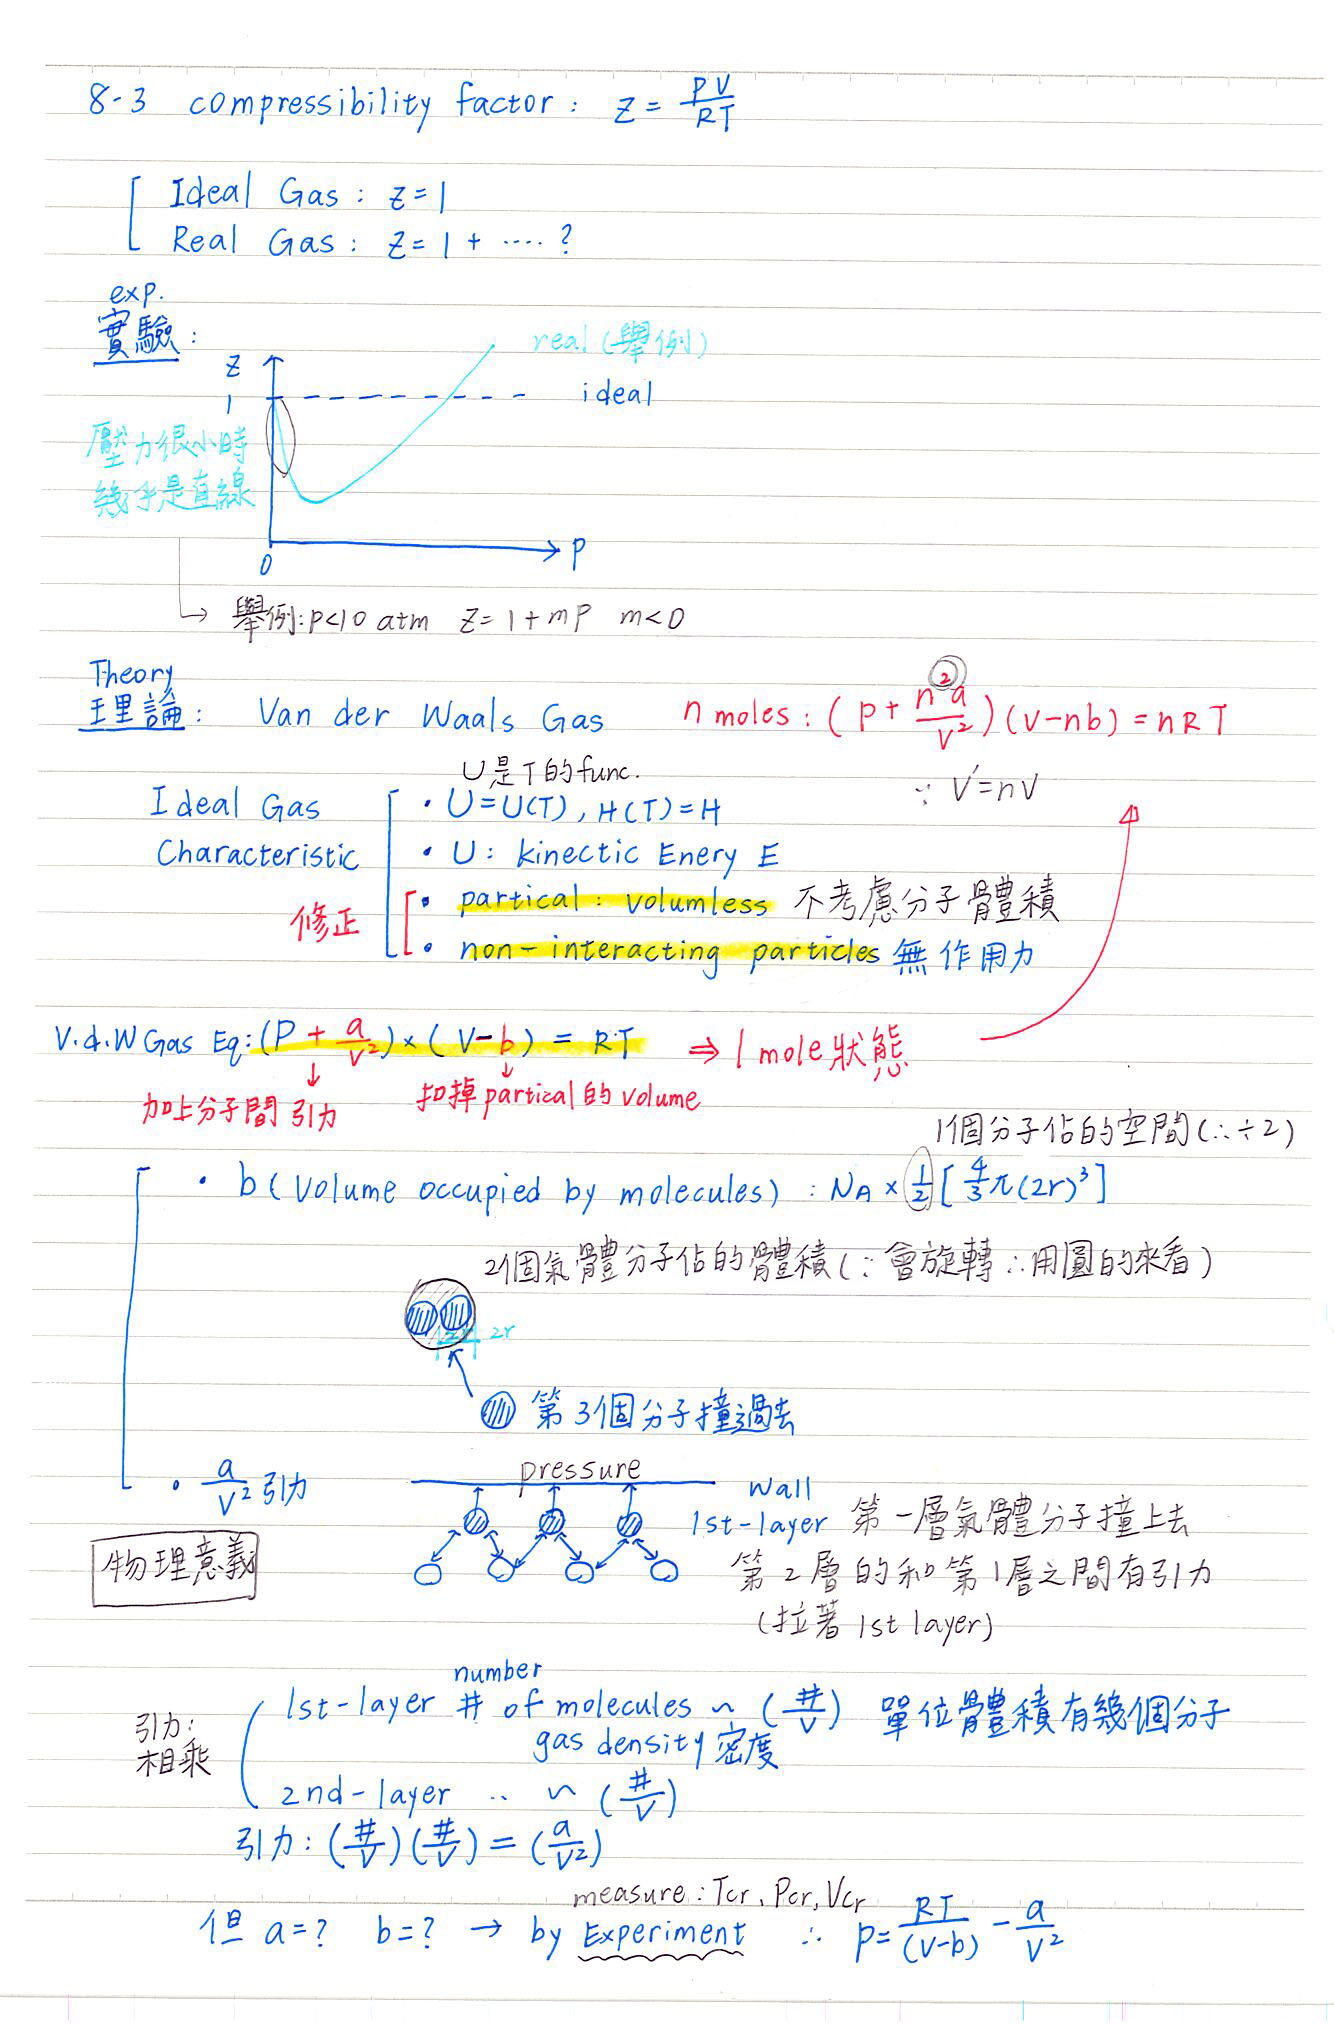 8-3 compressibility factor : Z = PV/RT
Ideal Gas : Z=1
Real Gas : Z=1+ ....?
exp.
實驗 :
real (舉例)
Z
1
ideal
壓力很小時
幾乎是直線
0
P
舉例:P<10 atm Z=1+mP m<0
Theory
理論 : Van der Waals Gas n moles : (P + n²a/V²)(V-nb) = nRT
∵ V'=nV
U是T的func.
Ideal Gas
Characteristic
• U=U(T), H(T)=H
• U : kinectic Enery E
修正
• partical : volumless 不考慮分子體積
• non-interacting particles 無作用力
V.d.W Gas Eq:(P + a/V²)×(V-b) = RT ⇒ 1 mole狀態
加上分子間引力
扣掉partical的volume
1個分子佔的空間(∴÷2)
• b (Volume occupied by molecules) : NA × 1/2 [4/3 π(2r)³]
2個氣體分子佔的體積(∵會旋轉∴用圓的來看)
2r
第3個分子撞過去
• a/V² 引力
pressure
Wall
1st-layer 第一層氣體分子撞上去
物理意義
第2層的和第1層之間有引力
(拉著1st layer)
number
1st-layer # of molecules ~ (#/V) 單位體積有幾個分子
gas density 密度
引力:
相乘
2nd-layer .. ~ (#/V)
引力 : (#/V)(#/V) = (a/V²)
measure : Tcr, Pcr, Vcr
但 a=? b=? → by Experiment ∴ P = RT/(V-b) - a/V²